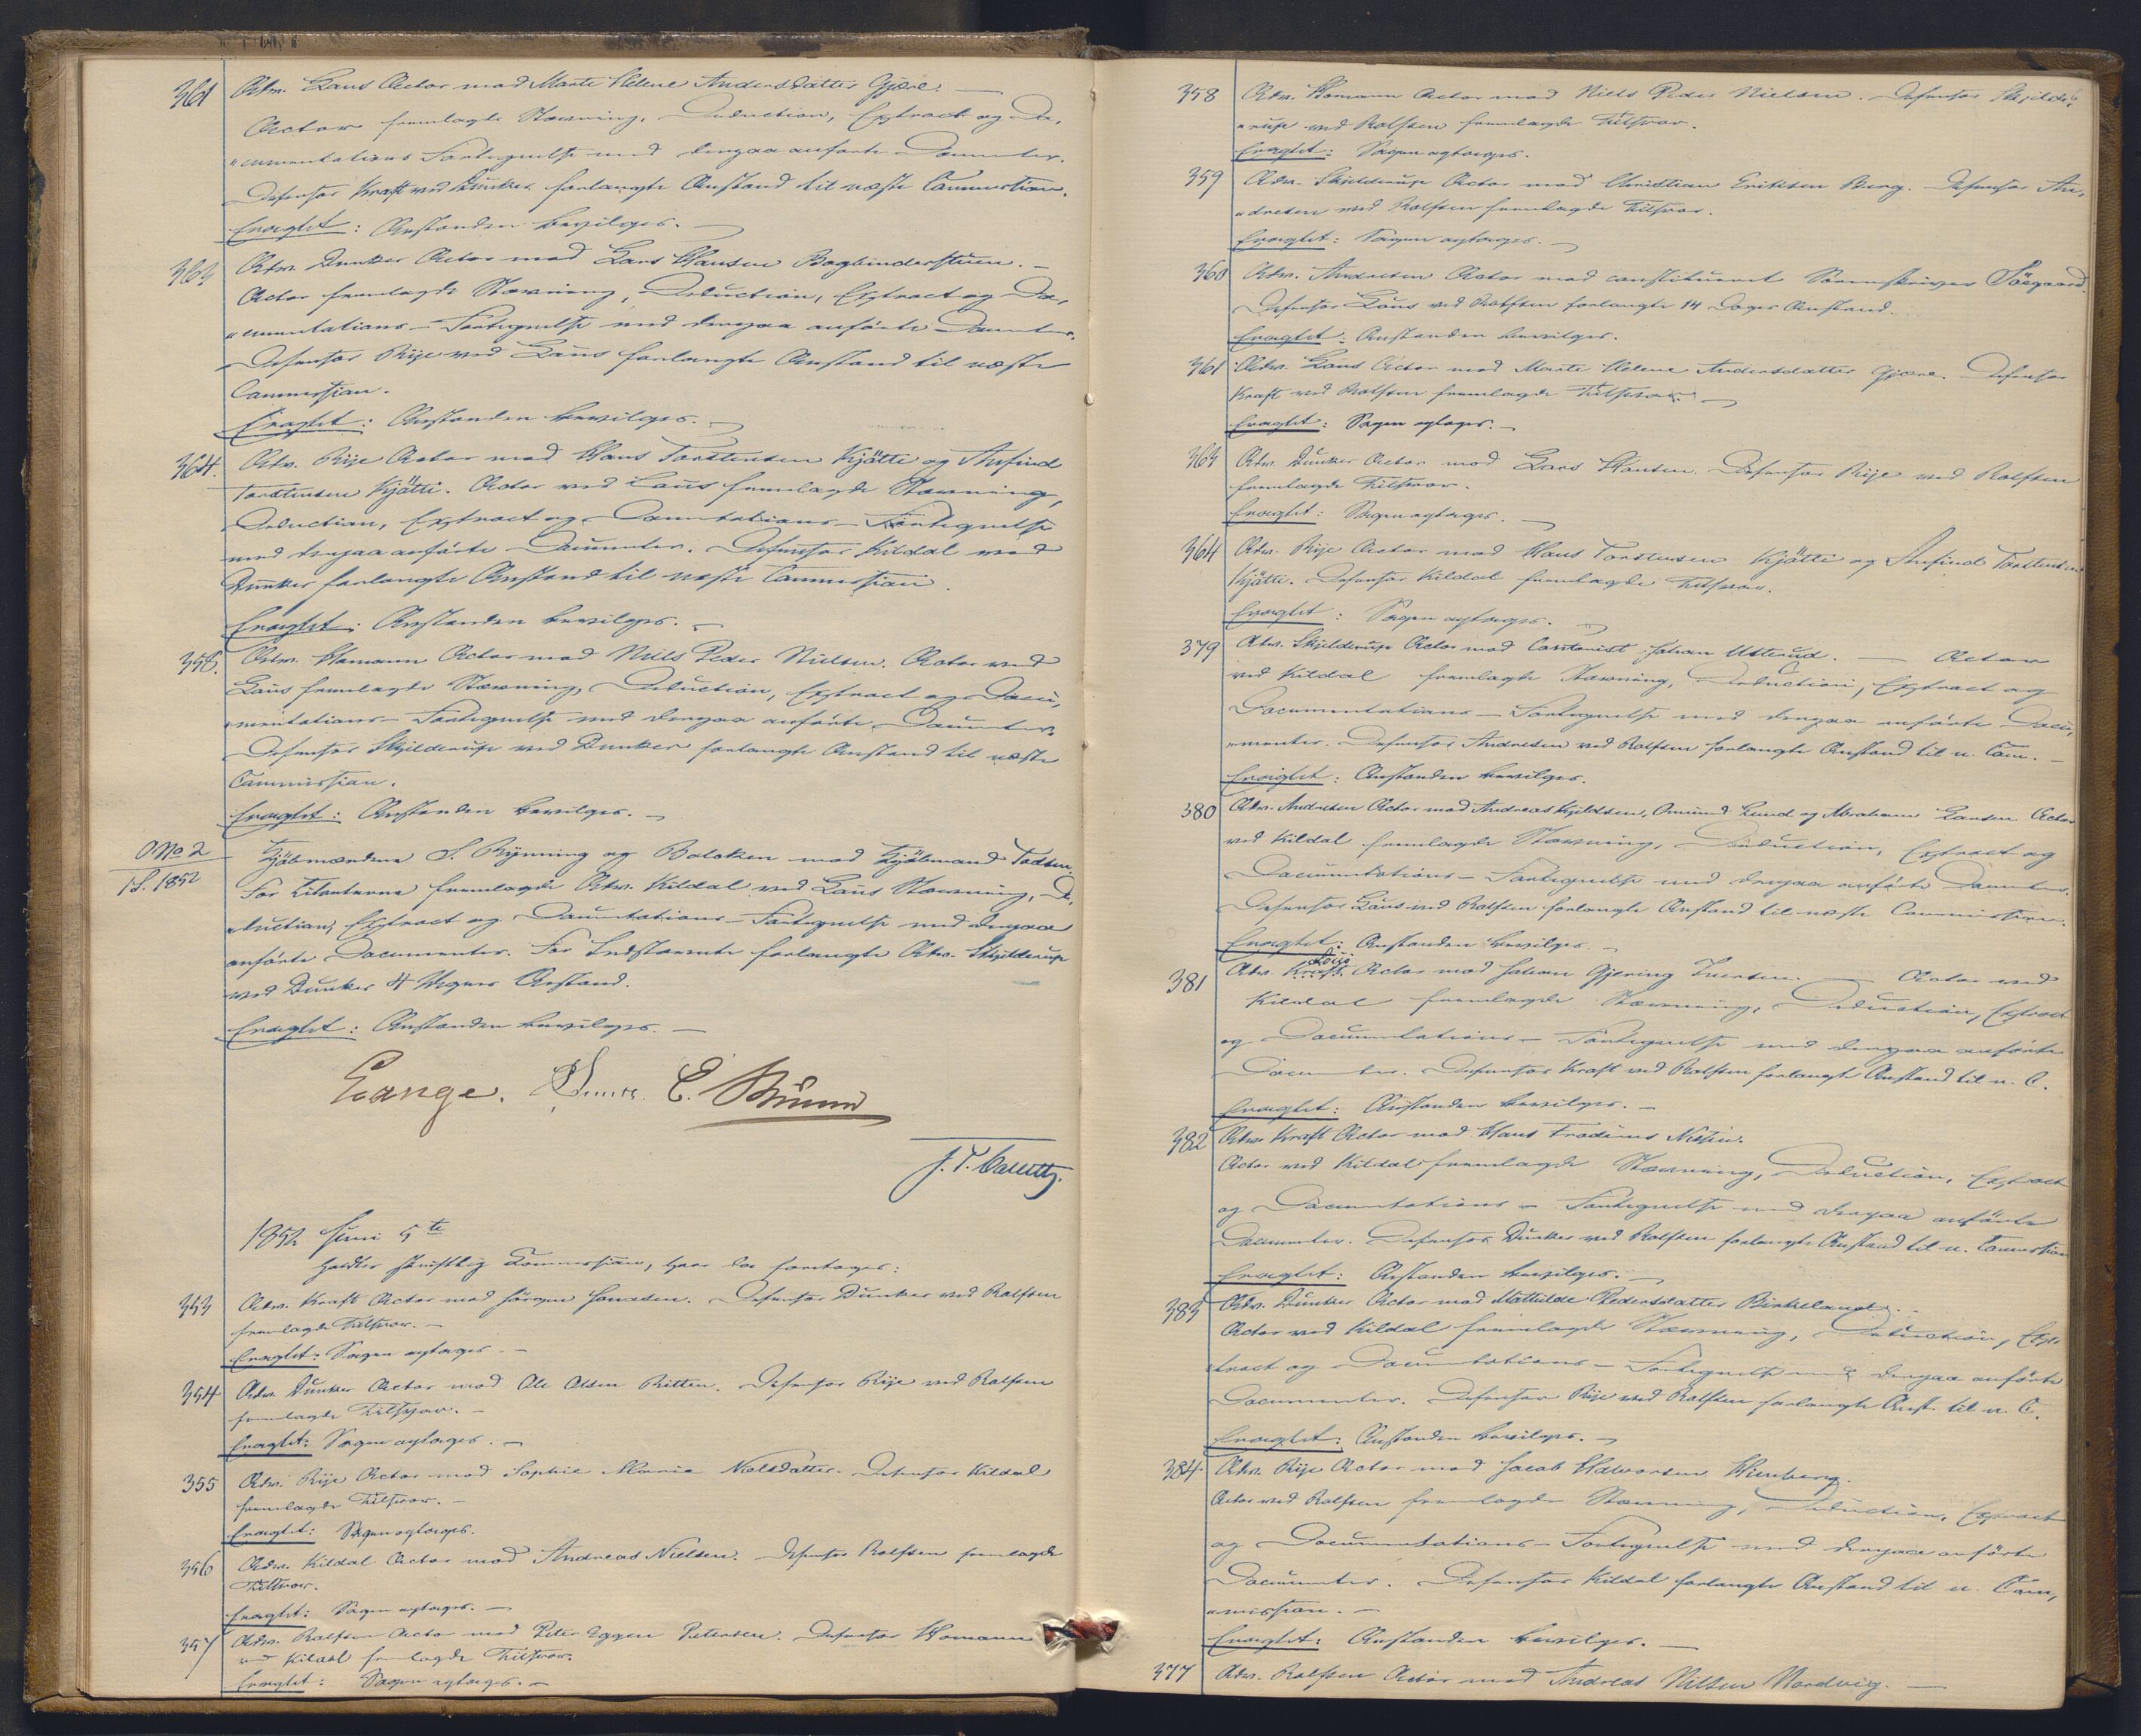 361 Adv. Laus Actor mod Marte Helene Andersdatter Gjære. —
Actor fremlagde Stævning, Deduction, Extract og Do-
"cumentations Fortegnelse med derpaa anførte Documenter.
Defensor Kraft ved Dunker forlangte Anstand til næste Commission.
Eragtet: Anstanden bevilges. —
363 Adv. Dunker Actor mod Lars Hansen Bogbinderstuen. —
Actor fremlagde Stævning, Deduction, Extract og Do-
"cumentations-Fortegnelse med derpaa anførte Documenter.
Defensor Rije ved Laus forlangte Anstand til næste
Commission.
Eragtet: Anstanden bevilges. —
364. Adv. Rije Actor mod Hans Torstensen Kjøtte og Anfind
Torstensen Kjøtti. Actor ved Laus fremlagde Stævning,
Deduction, Extract og Documentations-Fortegnelse
med derpaa anførte Documenter. Defensor Kildal ved
Dunker forlangte Anstand til næste Commission.
Eragtet: Anstanden bevilges. —
358. Adv. Homann Actor mod Niels Peder Nielsen. Actor ved
Laus fremlagde Stævning, Deduction, Extract og Docu-
"mentations-Fortegnelse med derpaa anførte Documenter.
Defensor Skjelderup ved Dunker forlangte Anstand til næste
Commission.
Eragtet: Anstanden bevilges. —
No 2
1 S. 1852
Kjøbmændene S. Rynning og Balcken mod Kjøbmand Todsen.
For Citanterne fremlagde Adv. Kildal ved Laus Stævning, De-
"duction, Extract og Documentations-Fortegnelse med derpaa
anførte Documenter. For Indstævnte forlangte Adv. Skjelderup
ved Dunker 4 Ugers Anstand.
Eragtet: Anstanden bevilges. —
Lange. C.
J. P.
1852 Juni 5te
holdtes skriftlig Commission, hvor da foretoges:
353 Adv. Kraft Actor mod Jörgen Jensen. Defensor Dunker ved Rolfsen
fremlagde Tilsvar. —
Eragtet: Sagen optages. —
354 Adv. Dunker Actor mod Ole Olsen Ritten. Defensor Rije ved Rolfsen
fremlagde Tilsvar. —
Eragtet: Sagen optages. —
355 Adv. Rije Actor mod Sophie Marie Nielsdatter. Defensor Kildal
fremlagde Tilsvar. —
Eragtet: Sagen optages.
356 Adv. Kildal Actor mod Andreas Nielsen. Defensor Rolfsen fremlagde
Tilsvar.
Eragtet: Sagen optages. —
357 Adv. Rolfsen Actor mod Peter Eggen Petersen. Defensor Homann
ved Kildal fremlagde Tilsvar.
Eragtet: Sagen optages. —
358 Adv. Homann Actor mod Niels Peder Nielsen. Defensor Skjelde-
"rup ved Rolfsen fremlagde Tilsvar.
Eragtet: Sagen optages.
359 Adv. Skjelderup Actor mod Christian Eriksen Berg. Defensor An-
"dresen ved Rolfsen fremlagde Tilsvar.
Eragtet: Sagen optages. —
360 Adv. Andresen Actor mod constitueret Sorenskriver Sögaard.
Defensor Laus ved Rolfsen forlangte 14 Dages Anstand.
Eragtet: Anstanden bevilges.
361 Adv. Laus Actor mod Marte Helene Andersdatter Gjære. Defensor
Kraft ved Rolfsen fremlagde Tilsvar. —
Eragtet: Sagen optages. —
363 Adv. Dunker Actor mod Lars Hansen. Defensor Rije ved Rolfsen
fremlagde Tilsvar.
Eragtet: Sagen optages. —
364 Adv. Rije Actor mod Hans Torstensen Kjøtti og Anfind Torstensen
Kjøtti. Defensor Kildal fremlagde Tilsvar.
Eragtet: Sagen optages. —
379 Adv. Skjelderup Actor mod Cantonist Johan Utterud. — Actor
ved Kildal fremlagde Stævning, Deduction, Extract og
Documentations-Fortegnelse med derpaa anførte Docu-
"menter. Defensor Andresen ved Rolfsen forlangte Anstand til n. Com. —
Eragtet: Anstanden bevilges.
380 Adv. Andresen Actor mod Andreas Kjeldsen, Omund Lund og Abraham Larsen. Actor
ved Kildal fremlagde Stævning, Deduction, Extract og
Documentations-Fortegnelse med derpaa anførte Documenter.
Defensor Laus ved Rolfsen forlangte Anstand til næste Commission.
Eragtet: Anstanden bevilges. —
381 Adv. Kraft Actor mod Johan Gjering Iversen. — Actor ved
Kildal fremlagde Stævning, Deduction, Extract
og Documentations-Fortegnelse med derpaa anførte
Documenter. Defensor Kraft ved Rolfsen forlangte Anstand til n. C.
Eragtet: Anstanden bevilges. —
382 Adv. Kraft Actor mod Hans Frodinus Nilsen.
Actor ved Kildal fremlagde Stævning, Deduction, Extract
og Documentations-Fortegnelse med derpaa anførte
Documenter. Defensor Dunker ved Rolfsen forlangte Anstand til n. Commission
Eragtet: Anstanden bevilges. —
383 Adv. Dunker Actor mod Mathilde Pedersdatter Birkeland. —
Actor ved Kildal fremlagde Stævning, Deduction, Ex-
"tract og Documentations-Fortegnelse med derpaa anførte
Documenter. Defensor Rije ved Rolfsen forlangte Anst. til n. C.
Eragtet: Anstanden bevilges. —
384 Adv. Rije Actor mod Jacob Halvorsen Wenberg.
Actor ved Rolfsen fremlagde Stævning, Deduction, Extract
og Documentations-Fortegnelse med derpaa anførte
Documenter. Defensor Kildal forlangte Anstand til n. Com-
"mission. —
Eragtet: Anstanden bevilges. —
377 Adv. Rolfsen Actor mod Andreas Nilsen Nordvig. —